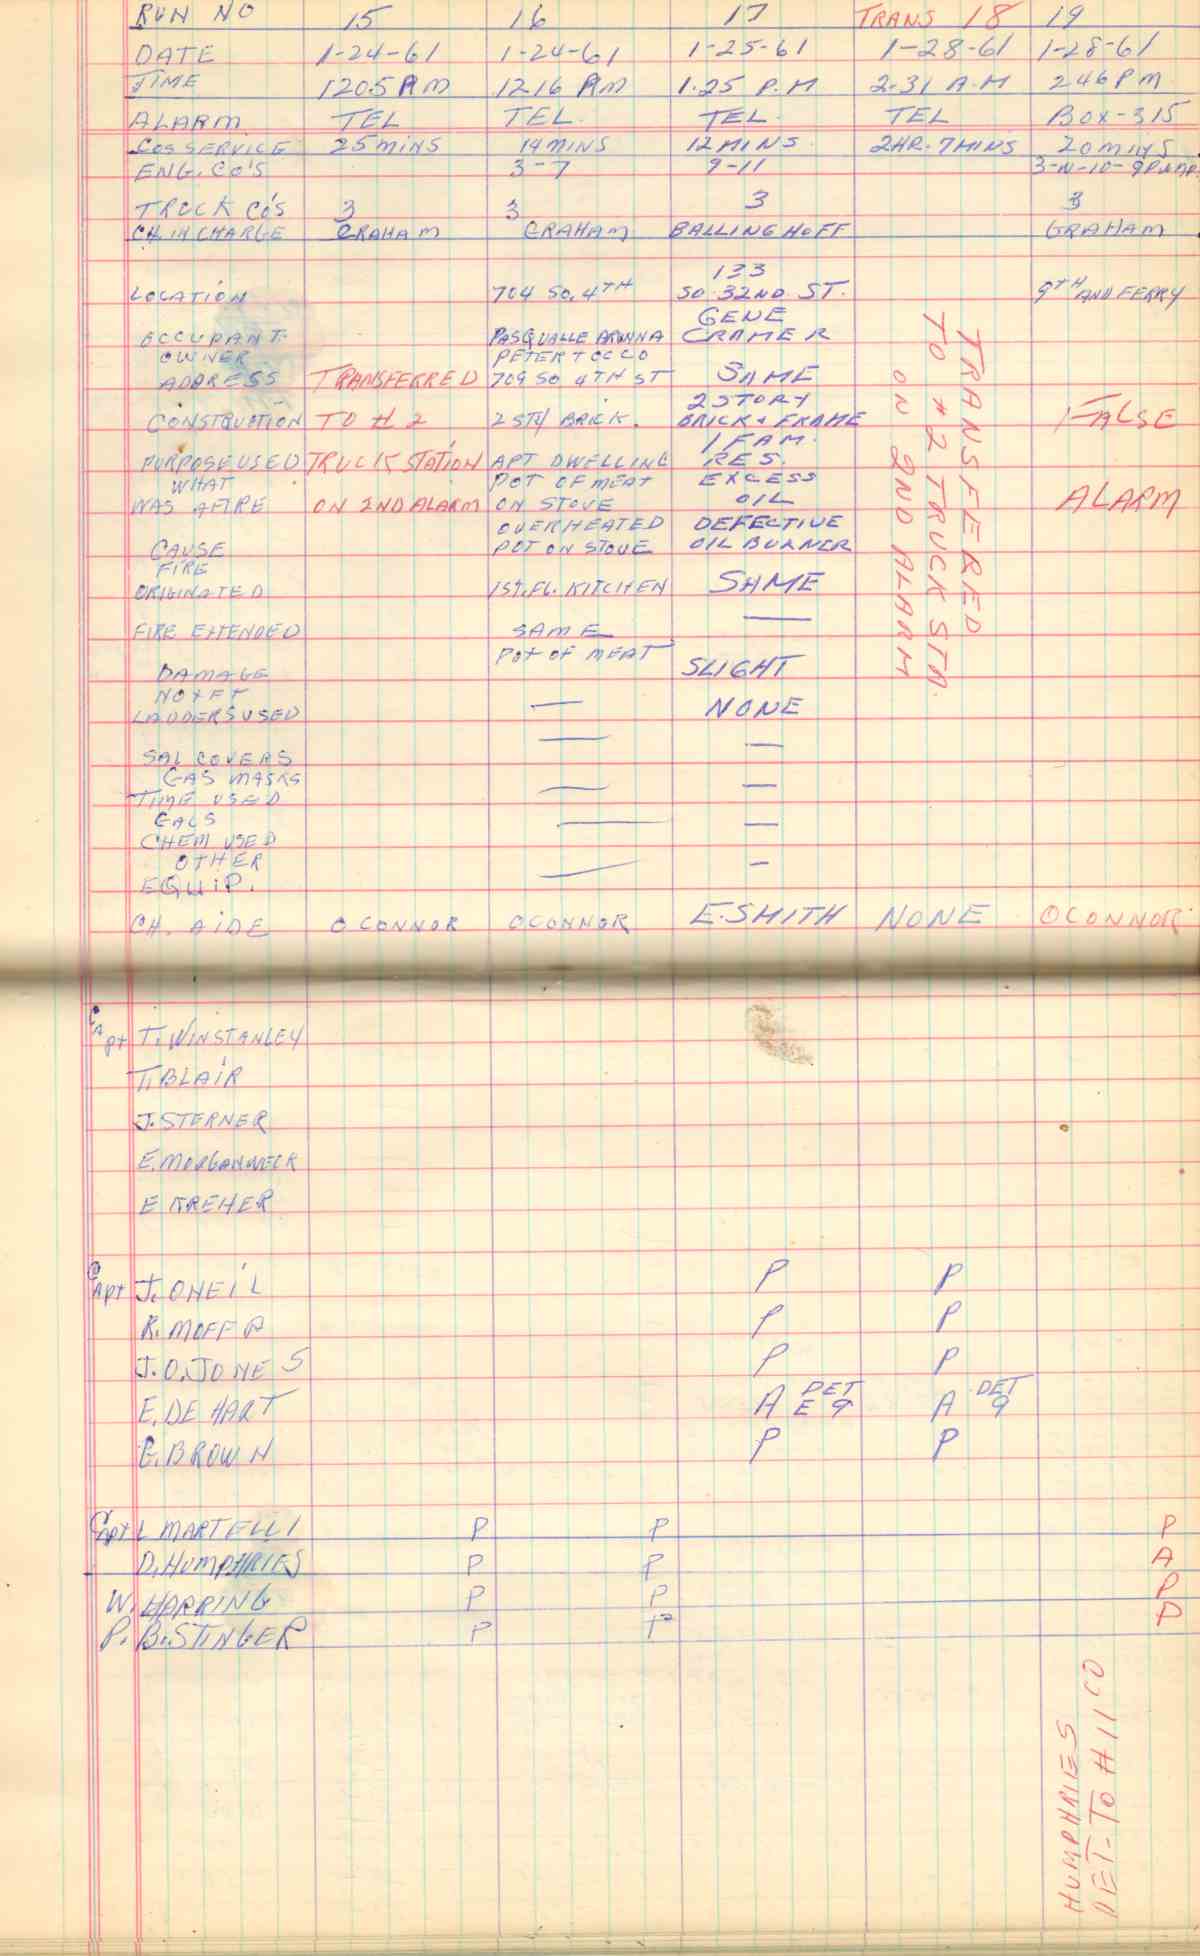 RUN NO 15 16 17 TRANS 18 19
DATE 1-24-61 1-24-61 1-25-61 1-28-61 1-28-61
TIME 1205 AM 1216 AM 1.25 P.M 2.31 A.M 2.46 P M
ALARM TEL TEL. TEL. TEL BOX-315
COS SERVICE 25 MINS 14 MINS 12 MINS. 2HR. 7MINS 20 MINS
ENG. CO'S 3-7 9-11
TRUCK CO'S 3 3 3 3
CH. IN CHARGE GRAHAM GRAHAM BALLINGHOFF GRAHAM
133
LOCATION 704 SO. 4TH SO. 32ND. ST. 9TH AND FERRY
GENE
OCCUPANT. PASQUALLE CRAMER
OWNER PETER TOCCO
ADDRESS TRANSFERRED 709 SO 4TH ST SAME
2 STORY
CONSTRUCTION TO # 2 2 STY BRICK. BRICK + FRAME FALSE
1 FAM.
PURPOSE USED TRUCK STATION APT DWELLING RES.
WHAT POT OF MEAT EXCESS
WAS AFIRE ON 2ND ALARM ON STOVE OIL ALARM
OVERHEATED DEFECTIVE
CAUSE POT ON STOVE OIL BURNER
FIRE
ORIGINATED 1ST. FL. KITCHEN SAME
FIRE EXTENDED SAME —
POT OF MEAT
DAMAGE SLIGHT
NO + FT
LADDERS USED — NONE
SAL COVERS — —
GAS MASKS
TIME USED — —
GALS
CHEM USED — —
OTHER
EQUIP. — —
CH. AIDE OCONNOR OCONNOR E. SMITH NONE OCONNOR
TRANSFERED
TO # 2 TRUCK STA.
ON 2ND ALARM
Capt T. WINSTANLEY
T. BLAIR
J. STERNER
E. MORGANWECK
E KREHER
Capt J. ONEIL P P
R. MOFFA P P
J.O. JONES P P
E. DE HART A DET E 9 A DET 9
G. BROWN P P
Capt L MARTELLI P P P
D. HUMPHRIES P P A
W. HARRING P P P
P. B. STINGER P P P
HUMPHRIES
DET-TO # 11 CO